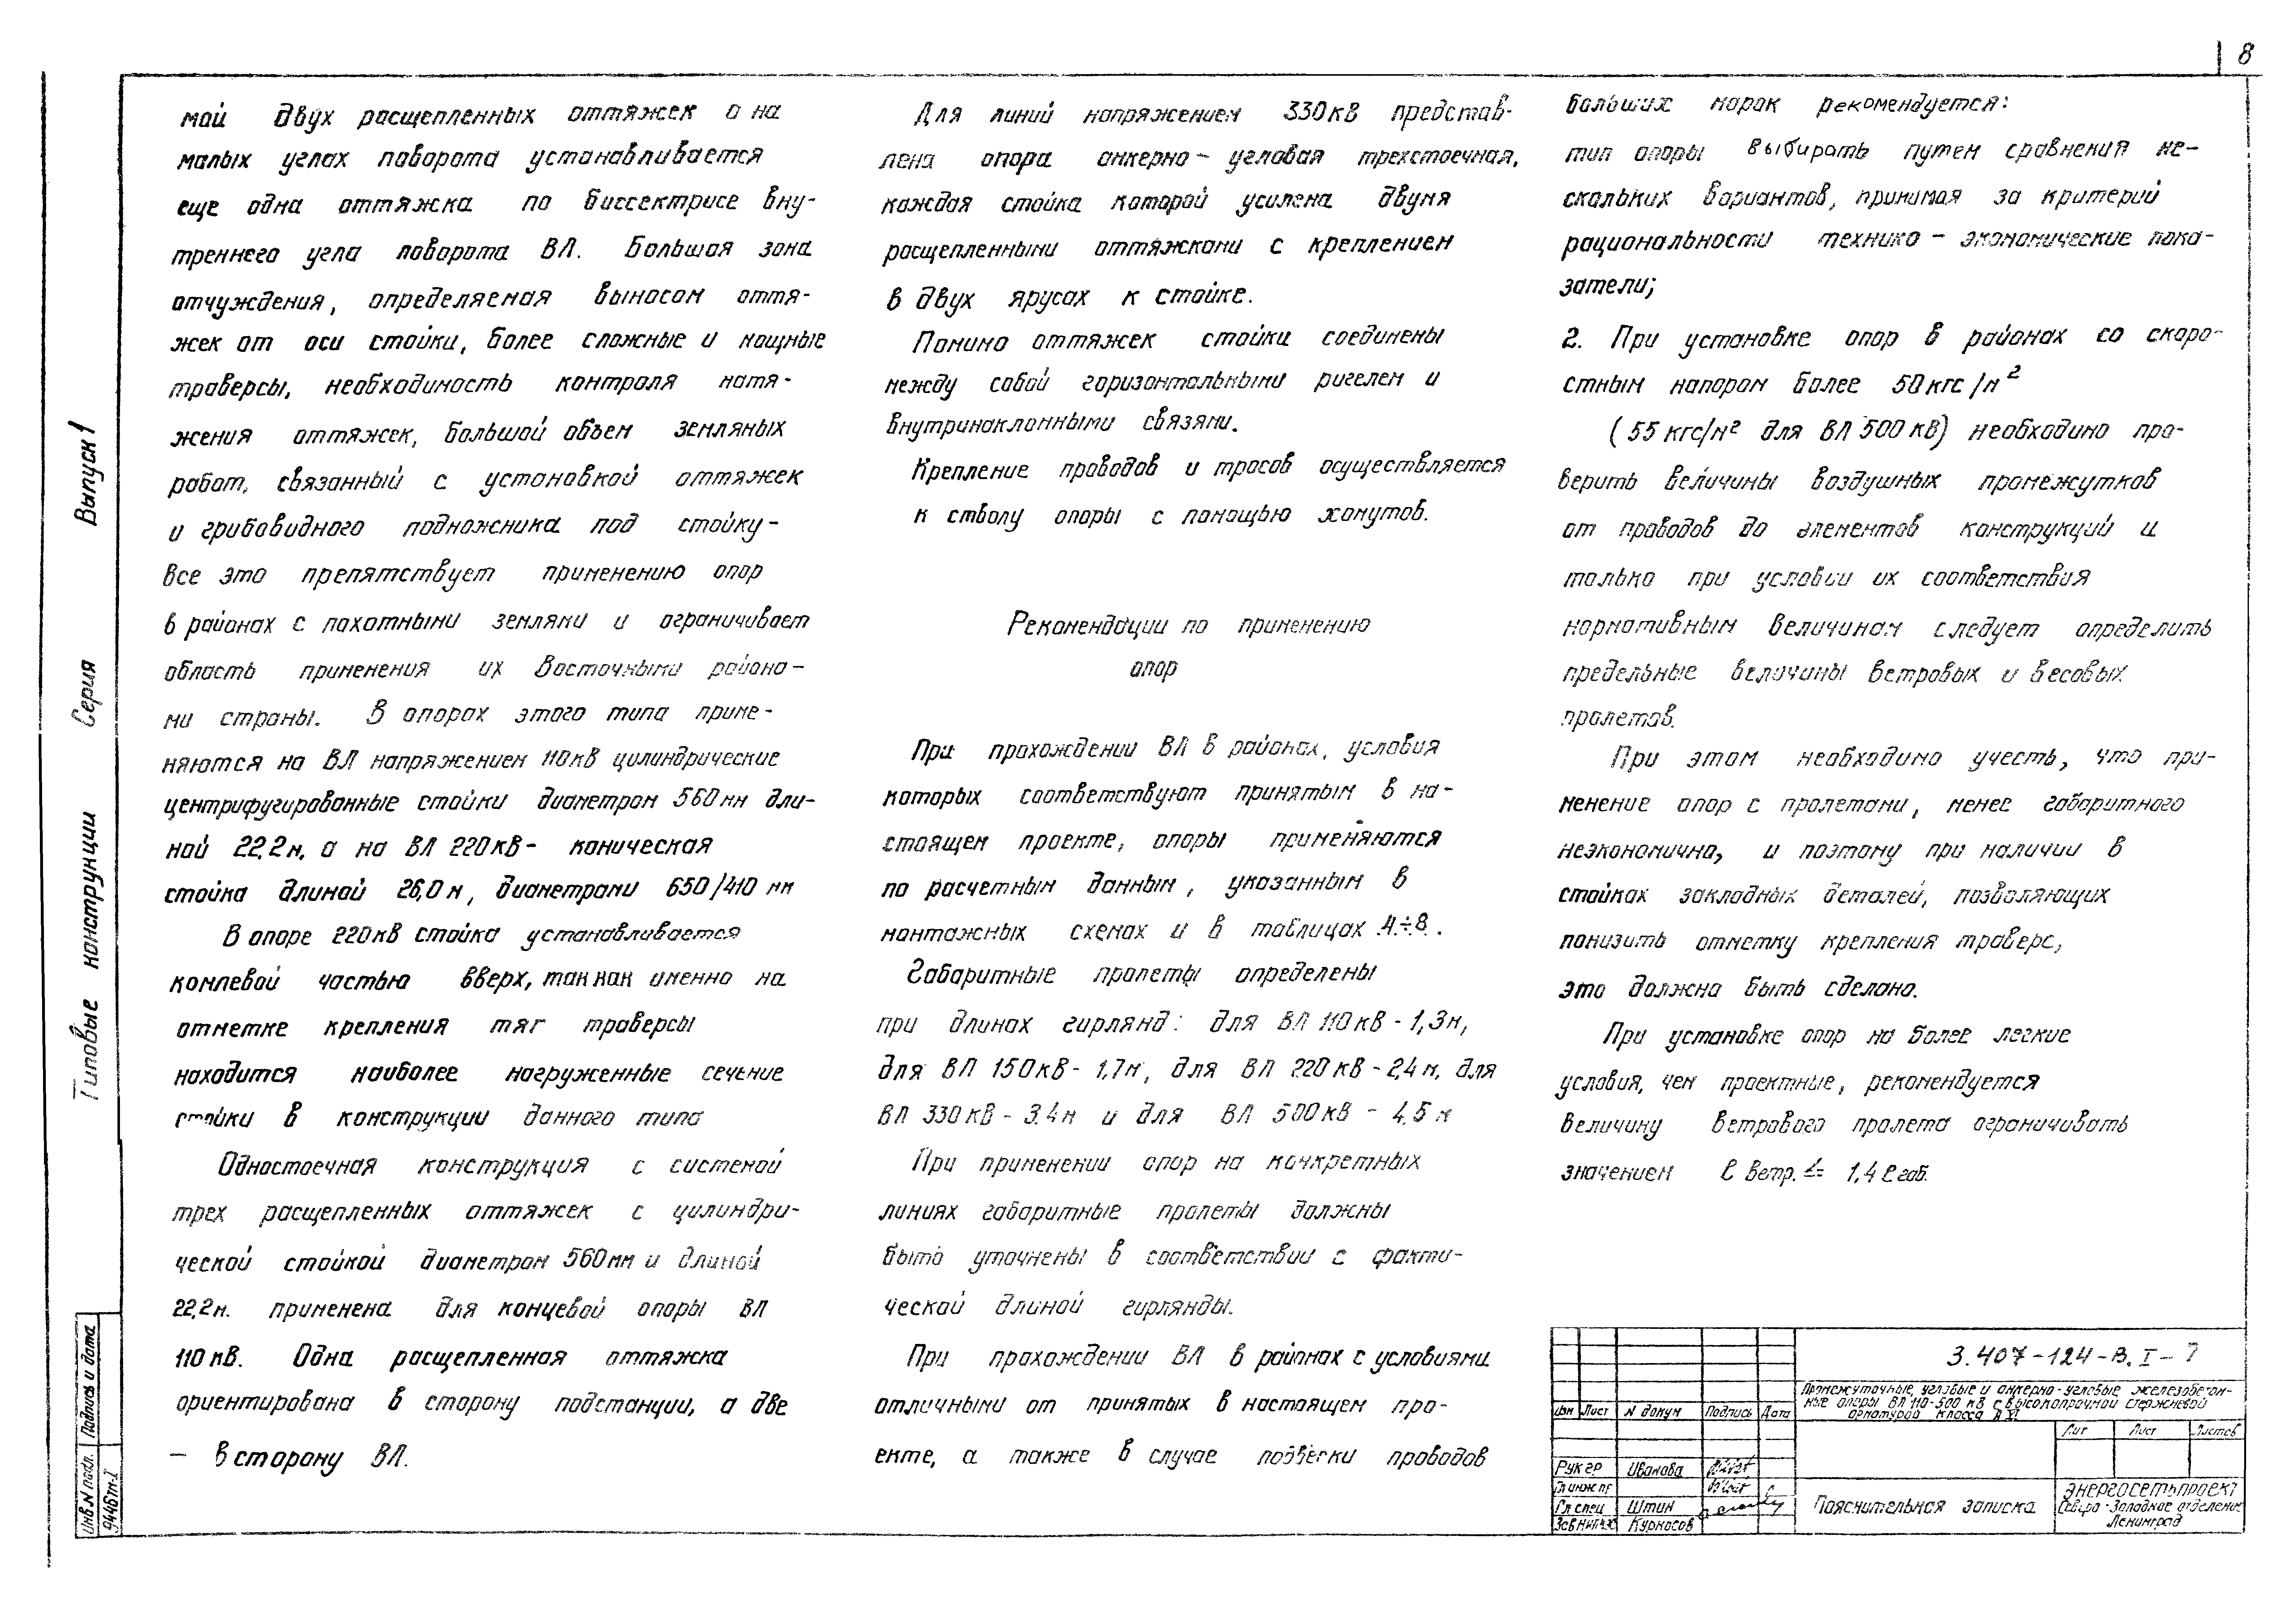 8
мой двух расщепленных оттяжек а на
малых углах поворота устанавливается
еще одна оттяжка по биссектрисе вну-
треннего угла поворота ВЛ. Большая зона
отчуждения, определяемая выносом оття-
жек от оси стойки, более сложные и мощные
траверсы, необходимость контроля натя-
жения оттяжек, большой объем земляных
работ, связанный с установкой оттяжек
и грибовидного подножника под стойку-
Все это препятствует применению опор
в районах с пахотными землями и ограничивает
область применения их Восточными района-
ми страны. В опорах этого типа приме-
няются на ВЛ напряжением 110кВ цилиндрические
центрифугированные стойки диаметром 560мм дли-
ной 22,2м, а на ВЛ 220кВ- коническая
стойка длиной 26,0м, диаметрами 650/410 мм
В опоре 220кВ стойка устанавливается
комлевой частью вверх, так как именно на
отметке крепления тяг траверсы
находится наиболее нагруженные сечение
стойки в конструкции данного типа
Одностоечная конструкция с системой
трех расщепленных оттяжек с цилиндри-
ческой стойкой диаметром 560мм и длиной
22,2м. применена для концевой опоры ВЛ
110кВ. Одна расщепленная оттяжка
ориентирована в сторону подстанции, а две
– в сторону ВЛ.
Для линий напряжением 330кВ представ-
лена опора анкерно-угловая трехстоечная,
каждая стойка которой усилена двумя
расщепленными оттяжками с креплением
в двух ярусах к стойке.
Помимо оттяжек стойки соединены
между собой горизонтальными ригелем и
внутринаклонными связями.
Крепление проводов и тросов осуществляется
к стволу опоры с помощью хомутов.
Рекомендации по применению
опор
При прохождении ВЛ в районах, условия
которых соответствуют принятым в на-
стоящем проекте, опоры применяются
по расчетным данным, указанным в
монтажных схемах и в таблицах 4÷8.
Габаритные пролеты определены
при длинах гирлянд: для ВЛ 110кВ-1,3м,
для ВЛ 150кВ-1,7м, для ВЛ 220кВ-2,4м, для
ВЛ 330кВ-3,4м и для ВЛ 500кВ - 4,5 м
При применении опор на конкретных
линиях габаритные пролеты должны
быть уточнены в соответствии с факти-
ческой длиной гирлянды.
При прохождении ВЛ в районах с условиями
отличными от принятых в настоящем про-
екте, а также в случае подвески проводов
больших марок рекомендуется:
тип опоры выбирать путем сравнения не-
скольких вариантов, принимая за критерий
рациональности технико-экономические пока-
затели;
2. При установке опор в районах со скоро-
стным напором более 50кгс/м²
(55кгс/м² для ВЛ 500кВ) необходимо про-
верить величины воздушных промежутков
от проводов до элементов конструкций и
только при условии их соответствия
нормативным величинам следует определить
предельные величины ветровых и весовых
пролетов.
При этом необходимо учесть, что при-
менение опор с пролетами, менее габаритного
неэкономично, и поэтому при наличии в
стойках закладных деталей, позволяющих
понизить отметку крепления траверс,
это должно быть сделано.
При установке опор на более легкие
условия, чем проектные, рекомендуется
величину ветрового пролета ограничивать
значением ℓ ветр. ≤ 1,4 ℓ габ.
Типовые конструкции Серия Выпуск 1
Инв.N подл. Подпись и дата
9446тм-I
3.407-124-В.I-7
Промежуточные, угловые и анкерно-угловые железобетон-
ные опоры ВЛ 110-500 кВ с высокопрочной стержневой
арматурой класса А VI
Изм Лист N докум Подпись Дата
Лит Лист Листов
Рук гр Иванова
Гл инж пр
Гл спец Штин
Курносов
Пояснительная записка
Энергосетьпроект
Северо-Западное отделение
Ленинград